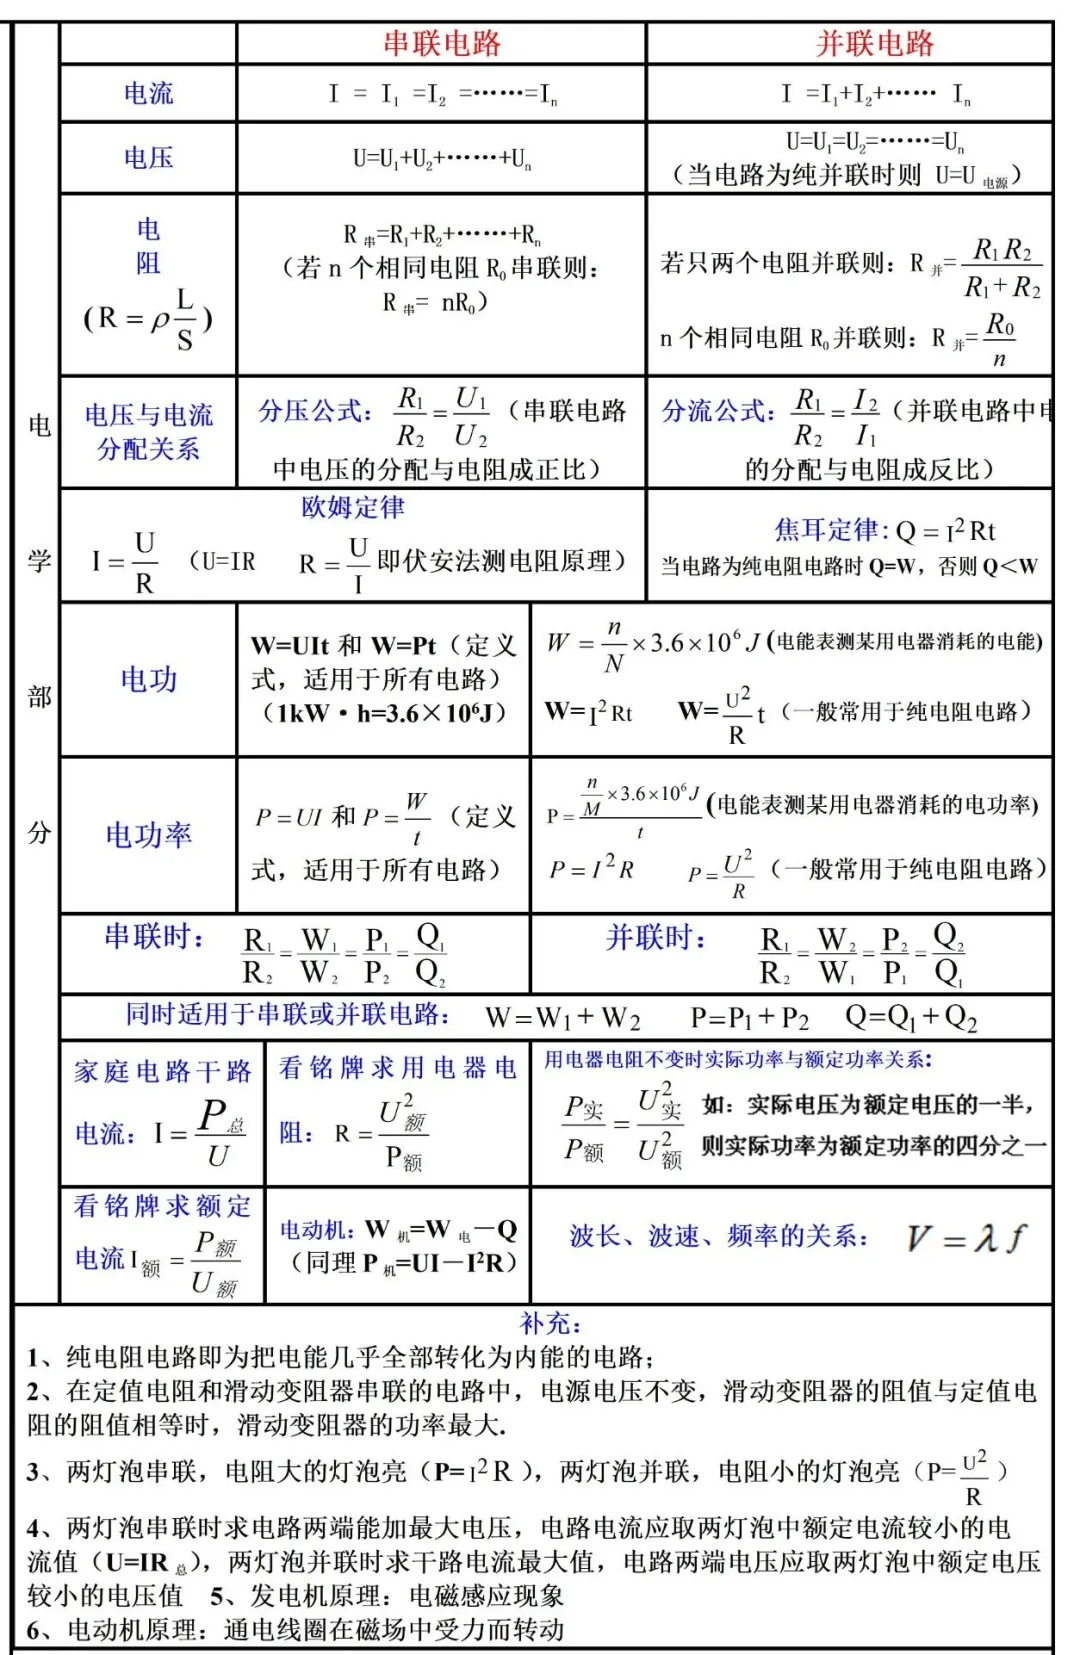 串联电路 并联电路
电流 I = I₁ =I₂ =……=Iₙ I =I₁+I₂+…… Iₙ
电压 U=U₁+U₂+……+Uₙ U=U₁=U₂=……=Uₙ
（当电路为纯并联时则 U=U电源）
电
阻
(R = ρL/S)
R串=R₁+R₂+……+Rₙ
（若 n 个相同电阻 R₀串联则：
R串= nR₀）
若只两个电阻并联则：R并=R₁R₂/(R₁+R₂)
n 个相同电阻 R₀并联则：R并=R₀/n
电
学
部
分
电压与电流
分配关系
分压公式：R₁/R₂=U₁/U₂（串联电路
中电压的分配与电阻成正比）
分流公式：R₁/R₂=I₂/I₁（并联电路中
的分配与电阻成反比）
欧姆定律
I=U/R （U=IR R=U/I 即伏安法测电阻原理）
焦耳定律：Q = I²Rt
当电路为纯电阻电路时 Q=W，否则 Q＜W
电功
W=UIt 和 W=Pt（定义
式，适用于所有电路）
（1kW·h=3.6×10⁶J）
W = n/N×3.6×10⁶J (电能表测某用电器消耗的电能)
W=I²Rt W=U²/R t（一般常用于纯电阻电路）
电功率
P=UI 和 P=W/t（定义
式，适用于所有电路）
P=(n/M×3.6×10⁶J)/t (电能表测某用电器消耗的电功率)
P=I²R P=U²/R（一般常用于纯电阻电路）
串联时： R₁/R₂=W₁/W₂=P₁/P₂=Q₁/Q₂ 并联时： R₁/R₂=W₂/W₁=P₂/P₁=Q₂/Q₁
同时适用于串联或并联电路： W=W₁+W₂ P=P₁+P₂ Q=Q₁+Q₂
家庭电路干路
电流：I=P总/U
看铭牌求用电器电
阻：R=U²额/P额
用电器电阻不变时实际功率与额定功率关系：
P实/P额=U²实/U²额 如：实际电压为额定电压的一半，
则实际功率为额定功率的四分之一
看铭牌求额定
电流 I额=P额/U额
电动机：W机=W电－Q
（同理 P机=UI－I²R）
波长、波速、频率的关系： V=λf
补充：
1、纯电阻电路即为把电能几乎全部转化为内能的电路；
2、在定值电阻和滑动变阻器串联的电路中，电源电压不变，滑动变阻器的阻值与定值电
阻的阻值相等时，滑动变阻器的功率最大.
3、两灯泡串联，电阻大的灯泡亮（P=I²R），两灯泡并联，电阻小的灯泡亮（P=U²/R）
4、两灯泡串联时求电路两端能加最大电压，电路电流应取两灯泡中额定电流较小的电
流值（U=IR总），两灯泡并联时求干路电流最大值，电路两端电压应取两灯泡中额定电压
较小的电压值 5、发电机原理：电磁感应现象
6、电动机原理：通电线圈在磁场中受力而转动